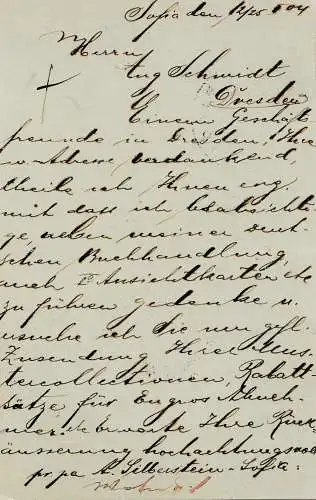 Sofia den 12/25 5 04
Herrn
Aug Schmidt
Dresden
Einem Geschäfts-
freunde in Dresden, Ihre
w. Adresse verdankend,
theile ich Ihnen erg.
mit dass ich beabsichti-
ge neben meiner deut-
schen Buchhandlung,
auch Ansichtkarten etc
zu führen gedenke u.
ersuche ich Sie um gefl.
Zusendung Ihrer Mus-
tercollectionen, Rabatt-
sätze für Engros Abneh-
mer etc Erwarte Ihre Rück-
äusserung hochachtungsvoll
pr. pa A. Silberstein - Sofia